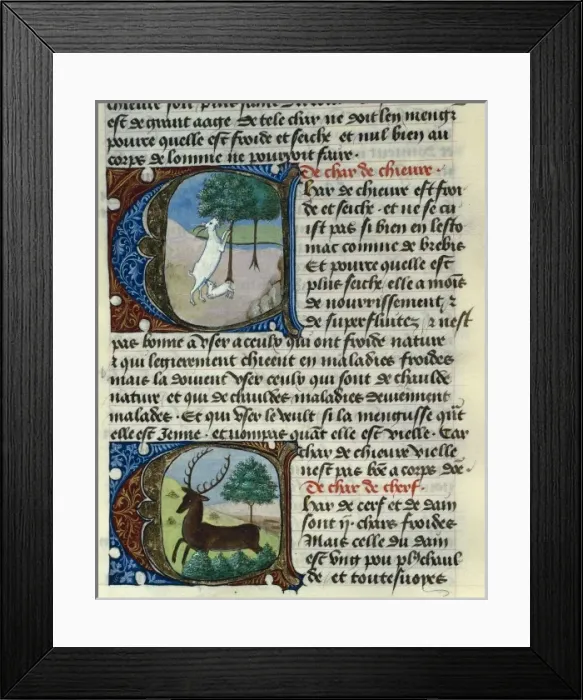 est de grant aage. De tele char ne doit len mengr
pource quelle est froide et seiche et nul bien au
corps de lomme ne pourroit faire.
De char de chieure.
har de chieure est froi
de et seiche. et ne se cu
ist pas si bien en lesto
mac comme de brebis
Et pource quelle est
plus seiche elle a mois
de nourrissement, ⁊
de superfluitez, ⁊ nest
pas bonne a vser a ceulx qui ont froide nature
⁊ qui legierement chieent en maladies froides
mais la doiuent vser ceulx qui sont de chaulde
nature et qui de chauldes maladies deuiennent
malades. Et qui vser le veult si la mengusse qut
elle est Jenne. et nompas quat elle est vielle. Car
char de chieure vielle
nest pas bõe a corps
De char de cherf.
har de cerf et de dain
sont ij. chars froides
Mais celle du dain
est vng pou plus chaul
de et toutesuoyes